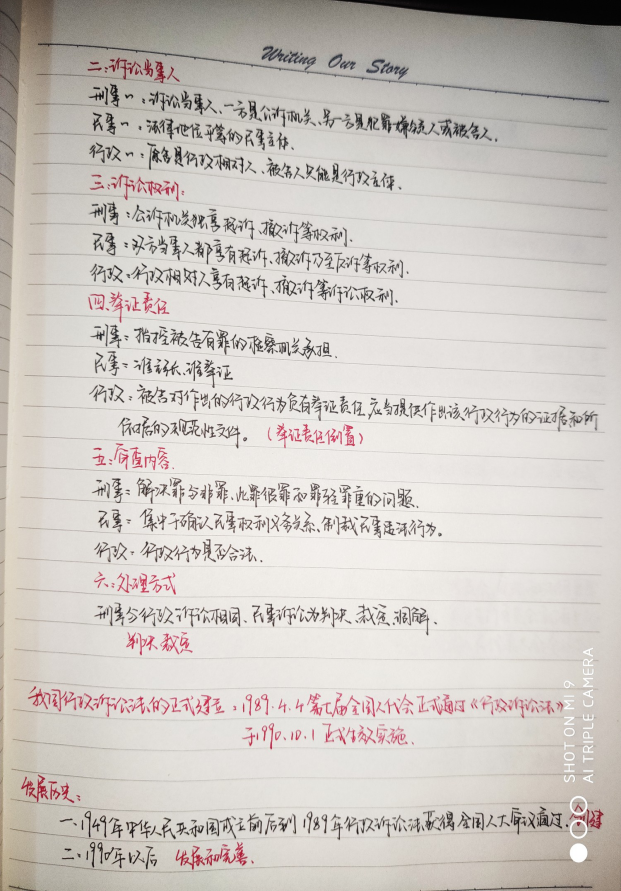 Writing Our Story
二:诉讼当事人
刑事〃:诉讼当事人、一方是公诉机关、另一方是犯罪嫌疑人或被告人.
民事〃:法律地位平等的民事主体.
行政〃:原告是行政相对人、被告人只能是行政主体.
三:诉讼权利:
刑事:公诉机关独享起诉、撤诉等权利.
民事:双方当事人都享有起诉、撤诉乃至反诉等权利.
行政:行政相对人享有起诉、撤诉等诉讼权利.
四.举证责任
刑事:指控被告有罪的检察机关承担.
民事:谁主张、谁举证
行政:被告对作出的行政行为负有举证责任,应当提供作出该行政行为的证据和所
依据的规范性文件。(举证责任倒置)
五:审查内容.
刑事:解决罪与非罪、此罪彼罪和罪轻罪重的问题.
民事:集中于确认民事权利义务关系、制裁民事违法行为。
行政:行政行为是否合法.
六:处理方式
刑事与行政诉讼相同、民事诉讼为判决、裁定、调解.
判决裁定
我国行政诉讼法的正式建立:1989.4.4第七届全国人代会正式通过《行政诉讼法》
于1990.10.1正式生效实施.
发展历史:
一.1949年中华人民共和国成立前后到1989年行政诉讼法获得全国人大审议通过.创建
二.1990年以后 发展和完善.
SHOT ON MI 9
AI TRIPLE CAMERA